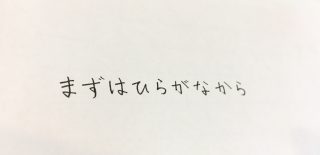 まずはひらがなから